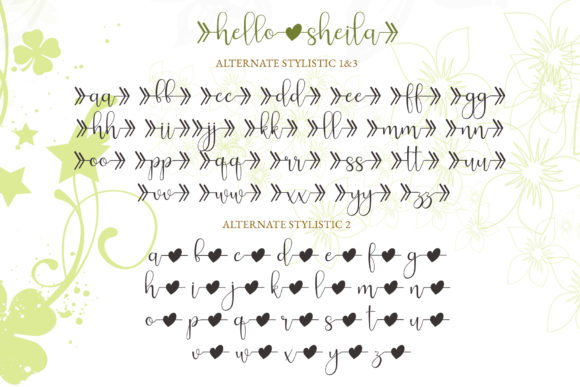 hello sheila
ALTERNATE STYLISTIC 1&3
aa bb cc dd ee ff gg
hh ii jj kk ll mm nn
oo pp qq rr ss tt uu
vv ww xx yy zz
ALTERNATE STYLISTIC 2
a b c d e f g
h i j k l m n
o p q r s t u
v w x y z